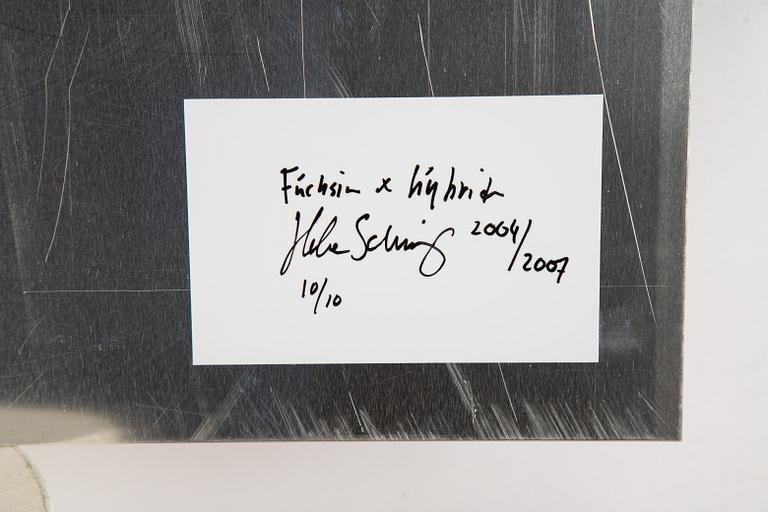 Fuchsia x hybrida
Helene Schmitz 2004/2007
10/10